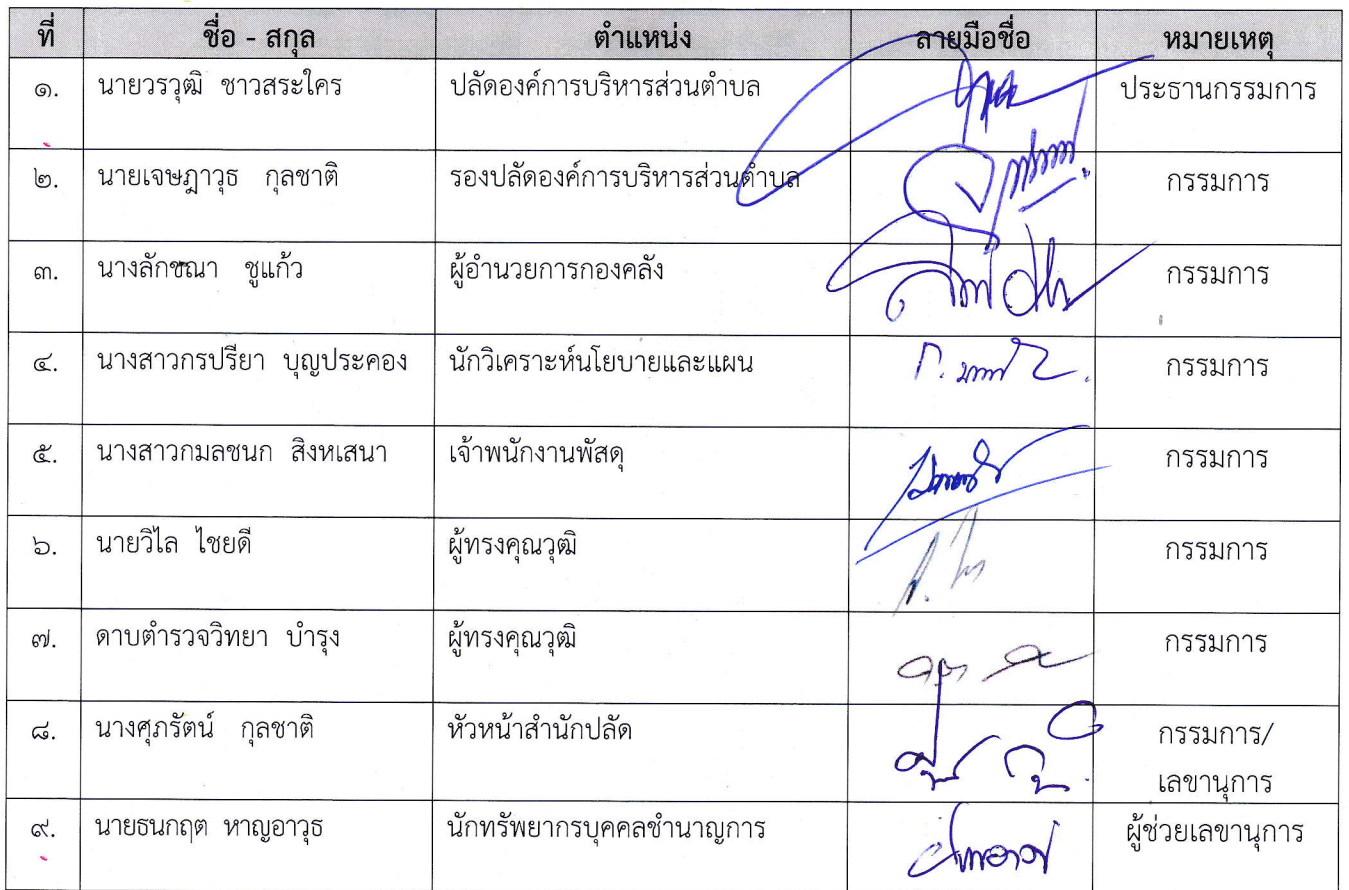 ที่ ชื่อ - สกุล ตำแหน่ง ลายมือชื่อ หมายเหตุ
๑. นายวรวุฒิ ชาวสระใคร ปลัดองค์การบริหารส่วนตำบล ประธานกรรมการ
๒. นายเจษฎาวุธ กุลชาติ รองปลัดองค์การบริหารส่วนตำบล กรรมการ
๓. นางลักขณา ชูแก้ว ผู้อำนวยการกองคลัง กรรมการ
๔. นางสาวกรปรียา บุญประคอง นักวิเคราะห์นโยบายและแผน กรรมการ
๕. นางสาวกมลชนก สิงหเสนา เจ้าพนักงานพัสดุ กรรมการ
๖. นายวิไล ไชยดี ผู้ทรงคุณวุฒิ กรรมการ
๗. ดาบตำรวจวิทยา บำรุง ผู้ทรงคุณวุฒิ กรรมการ
๘. นางศุภรัตน์ กุลชาติ หัวหน้าสำนักปลัด กรรมการ/
เลขานุการ
๙. นายธนกฤต หาญอาวุธ นักทรัพยากรบุคคลชำนาญการ ผู้ช่วยเลขานุการ